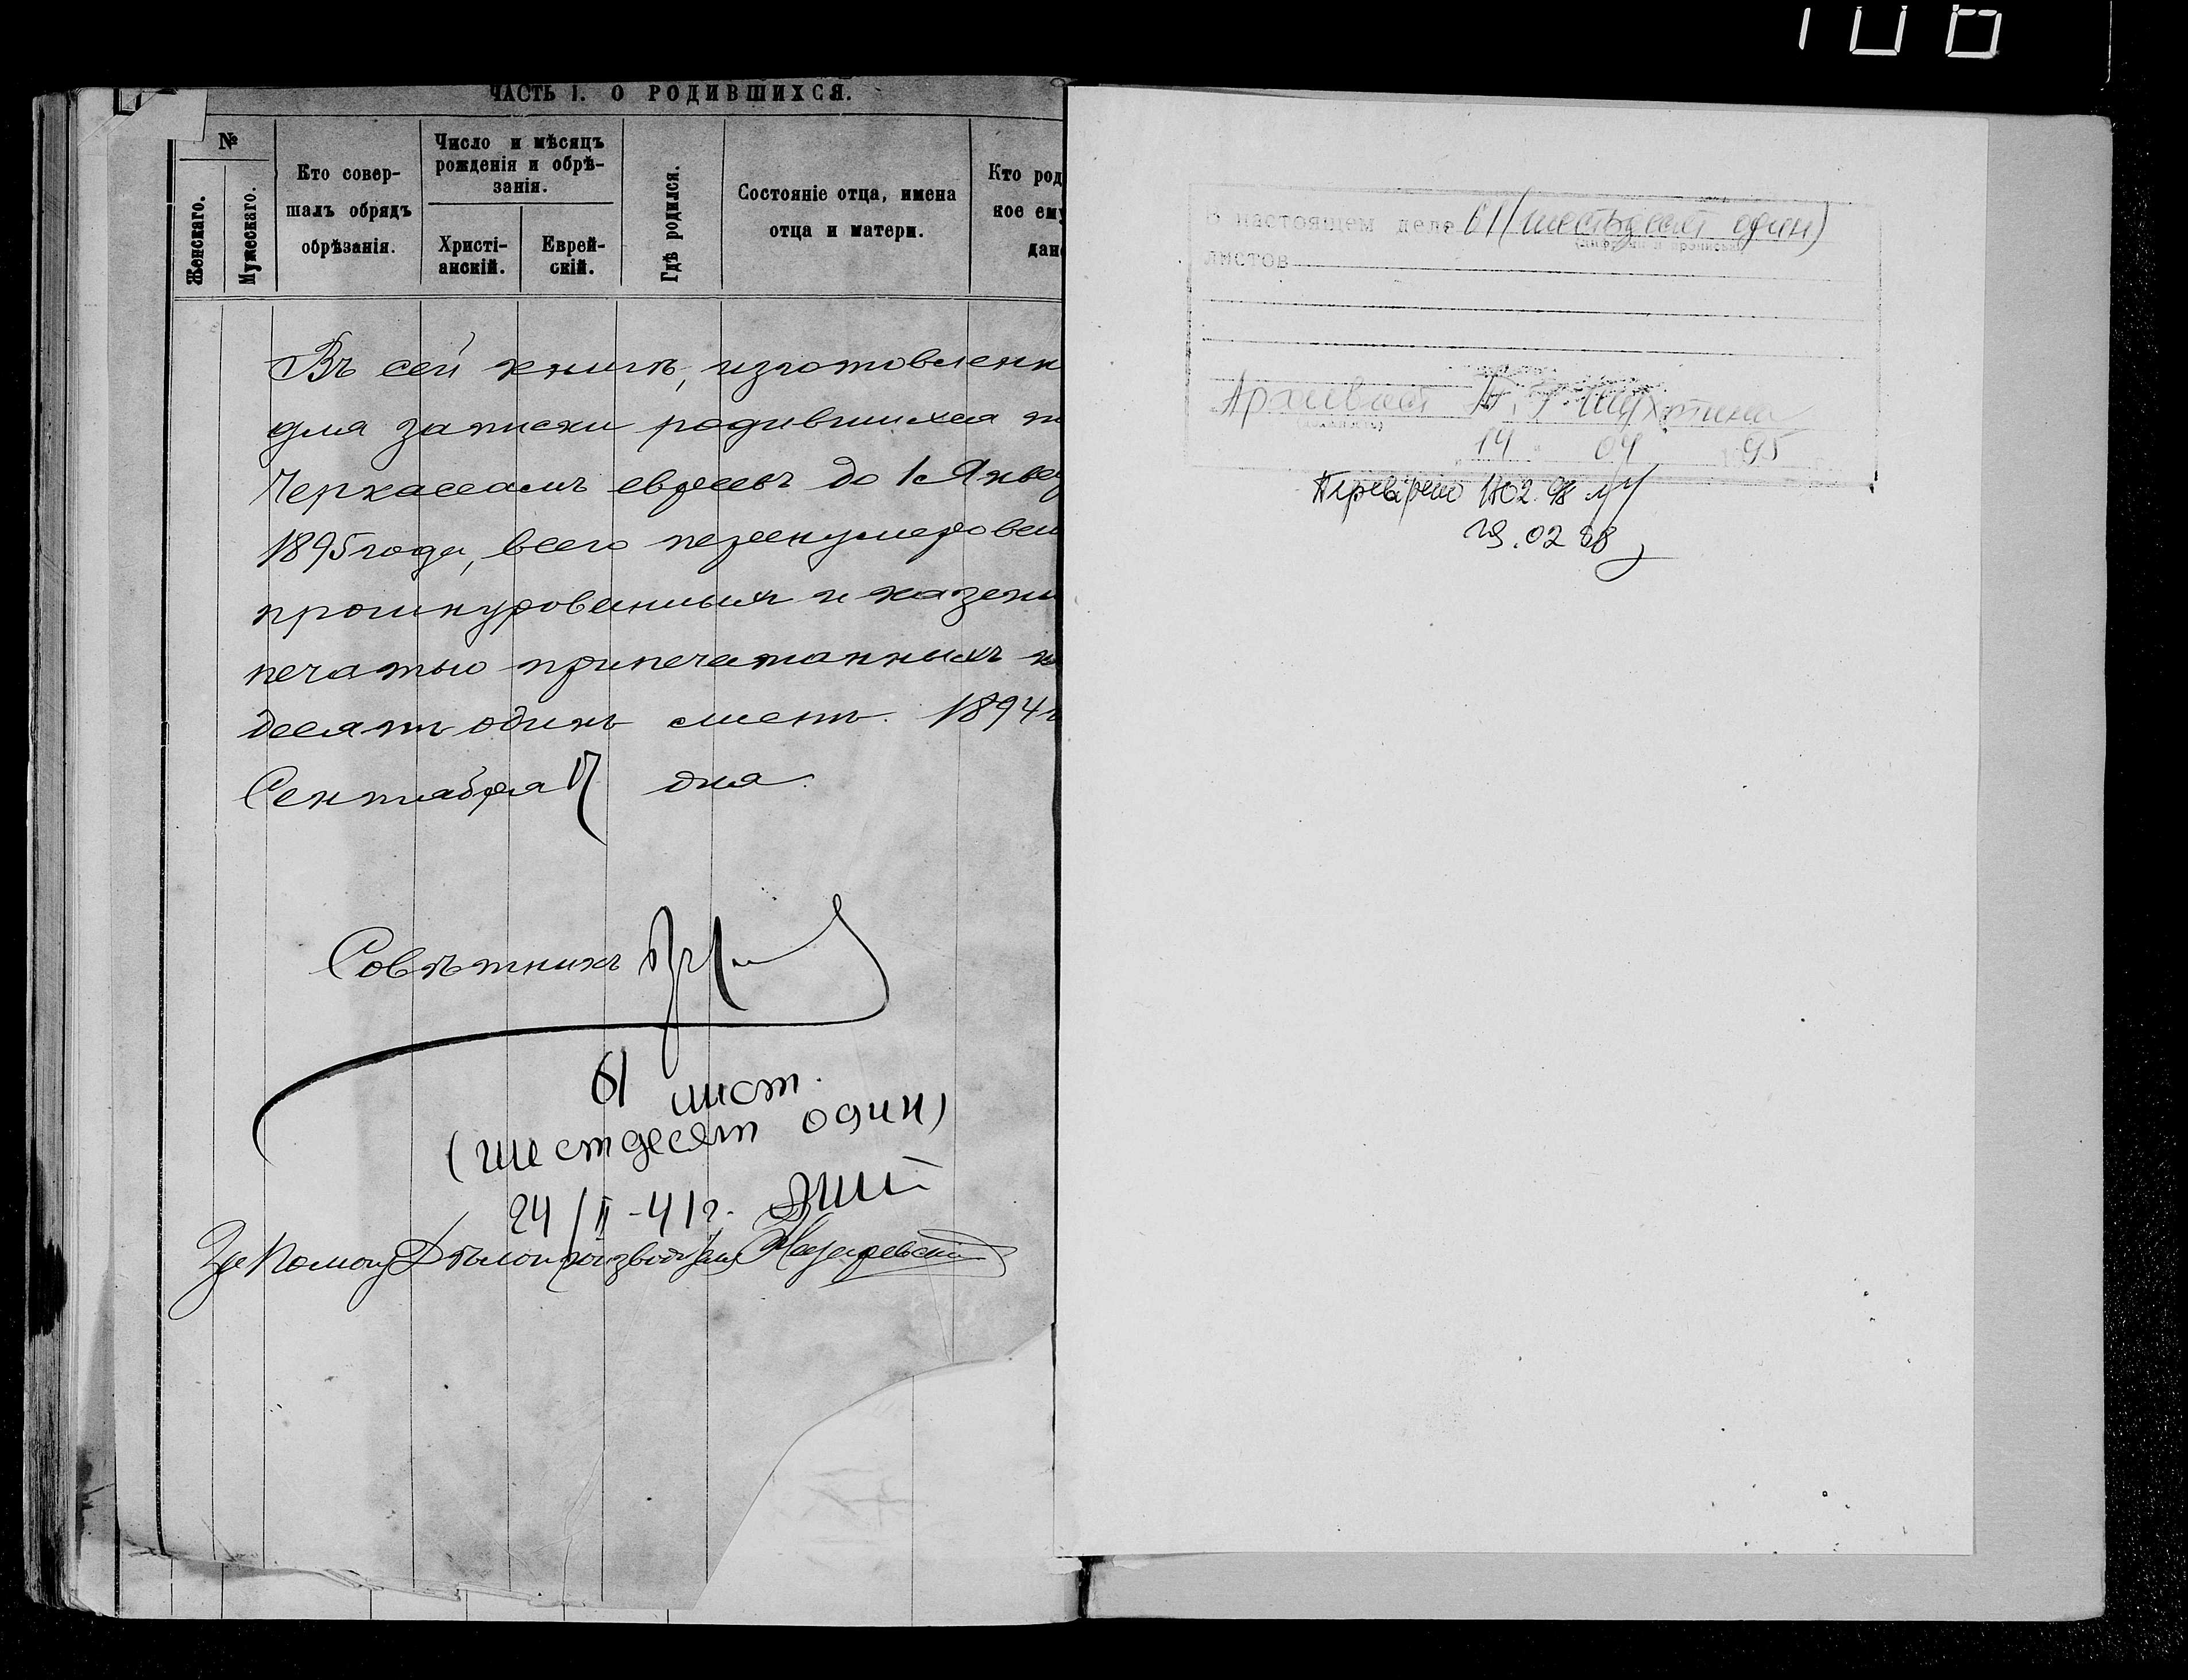 ЧАСТЬ I. О РОДИВШИХСЯ.
№
Женскаго.
Мужескаго.
Кто совер-
шалъ обрядъ
обрѣзанія.
Число и мѣсяцъ
рожденія и обрѣ-
занія.
Христі-
анскій.
Еврей-
скій.
Гдѣ родился.
Состояніе отца, имена
отца и матери.
Кто род
кое ему
дан
Въ сей книгѣ, изготовленн
для записки родившихся п
Черкассамъ евреевъ до 1 Янва
1895 года, всего перенумерован
прошнурованныхъ и казенн
печатью припечатанныхъ
десятъ одинъ листъ. 1894 г
Сентября 17 дня.
Совѣтникъ
61 лист.
(шестдесят один)
24/II-41г.
Дѣлопроизводителя
В настоящем деле 61 (шестьдесят один)
листов
Архивист
14 04 1995
Перевірено 1802.98